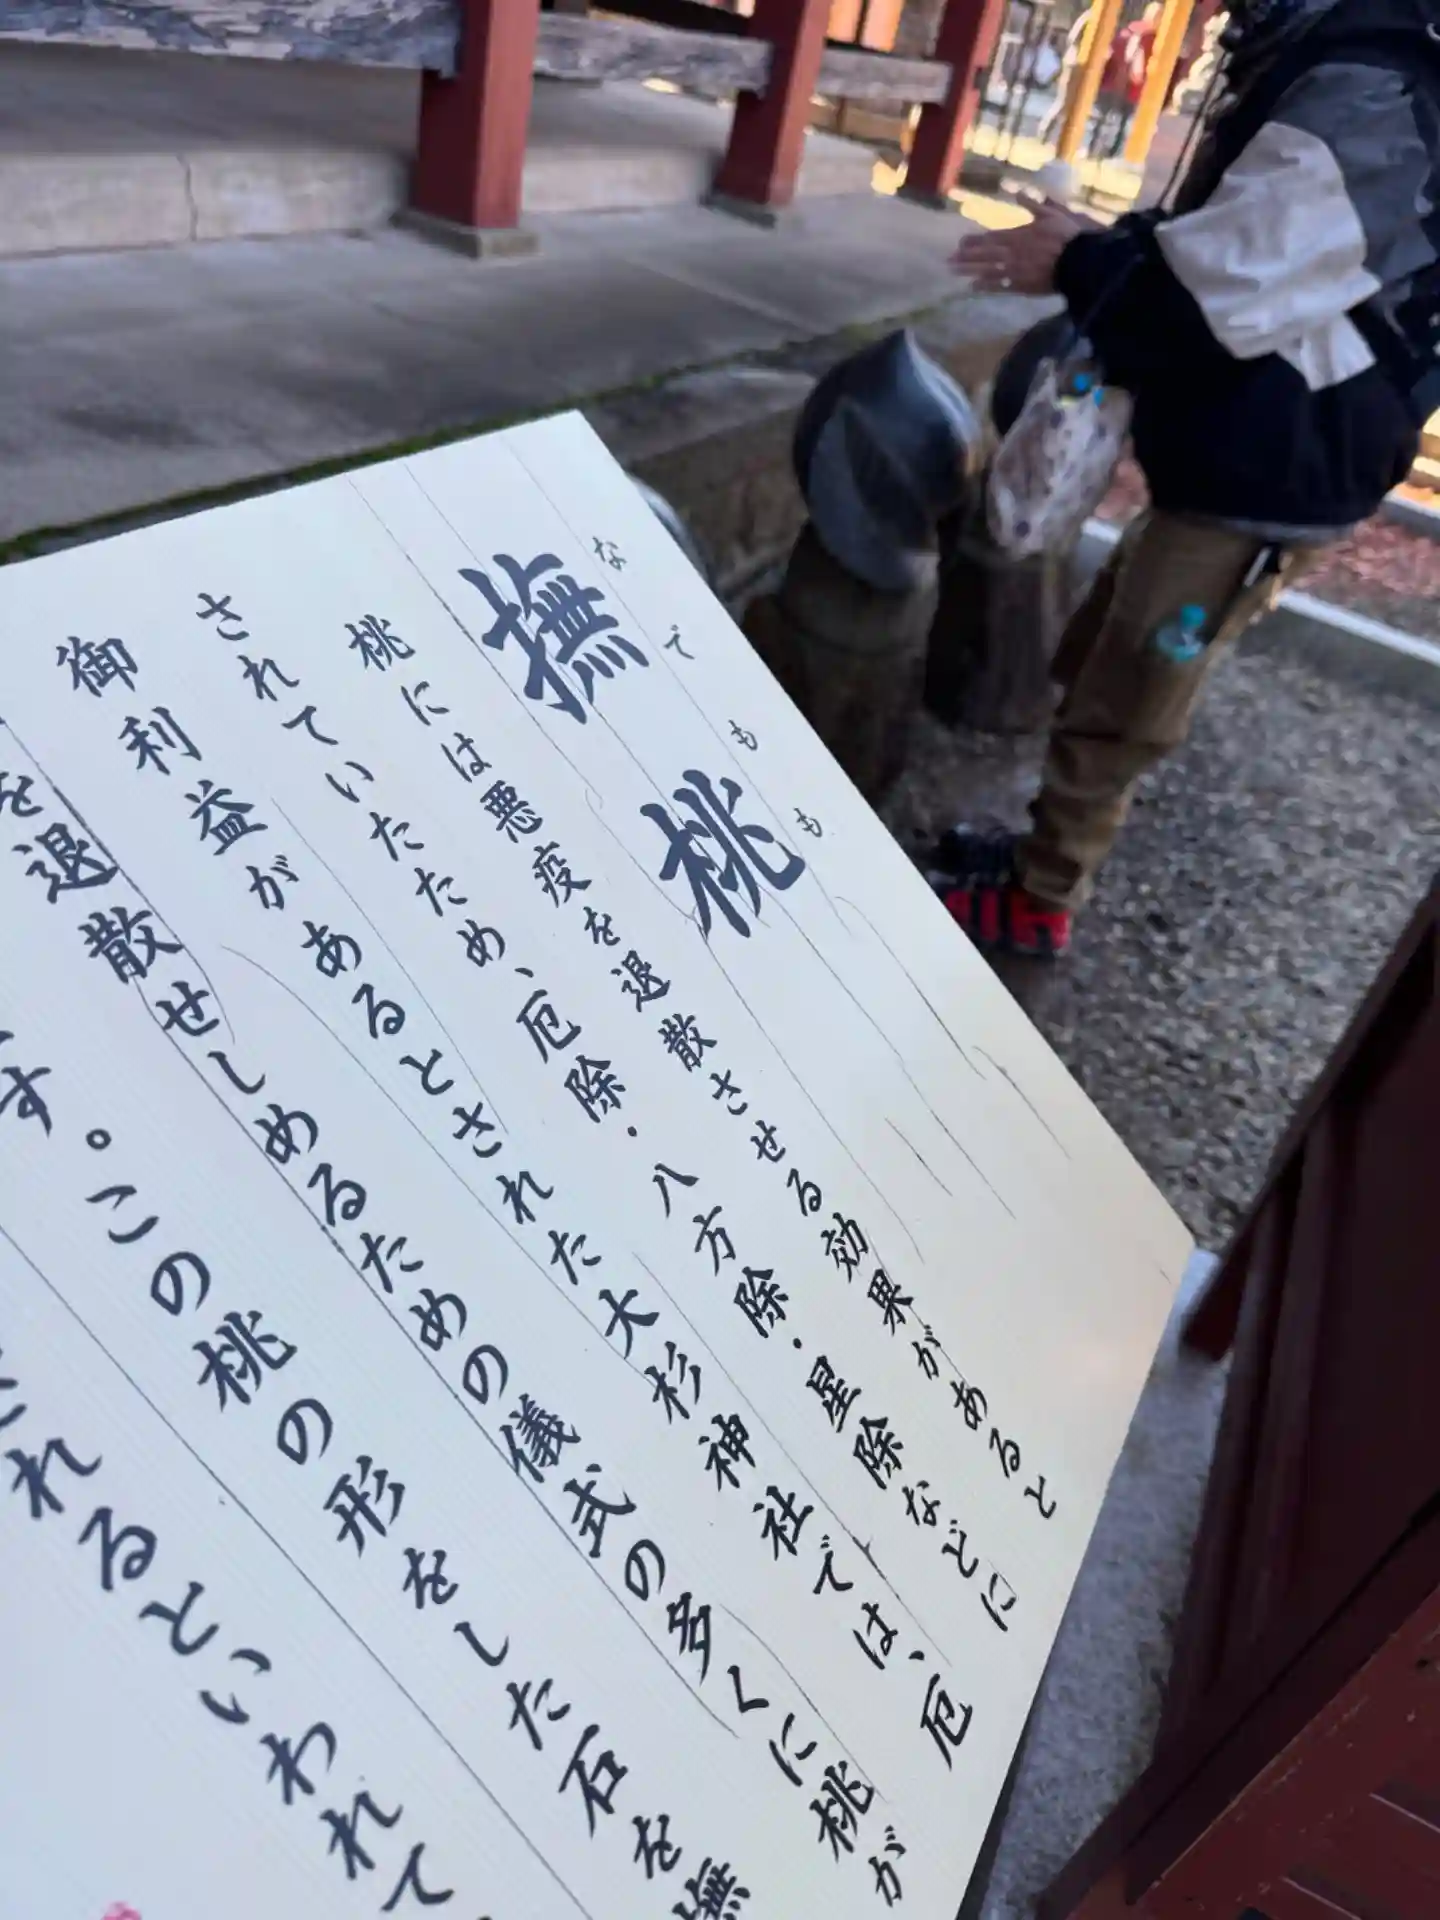 なでもも
撫桃
桃には悪疫を退散させる効果があると
されていたため、厄除・八方除・星除などに
御利益があるとされた大杉神社では、厄
を退散せしめるための儀式の多くに桃が
す。この桃の形をした石を撫
れるといわれて